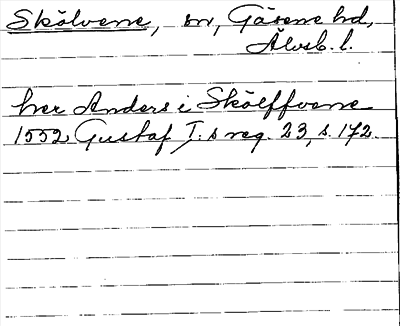 Skölvene, sn, Gäsene hd,
Älvsb. l.
her Anders i Skölffvene
1552 Gustaf I:s reg. 23, s. 172.